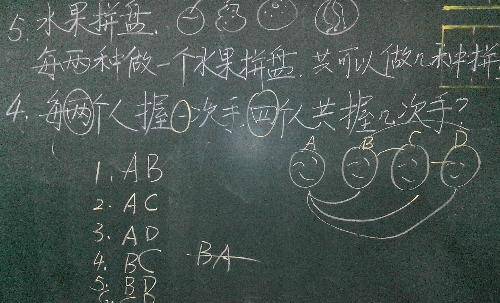 5. 水果拼盘.
每两种做一个水果拼盘. 共可以做几种拼
4. 每两个人握一次手. 四个人共握几次手?
A B C D
1. AB
2. AC
3. AD
4. BC BA
5. BD
6. CD